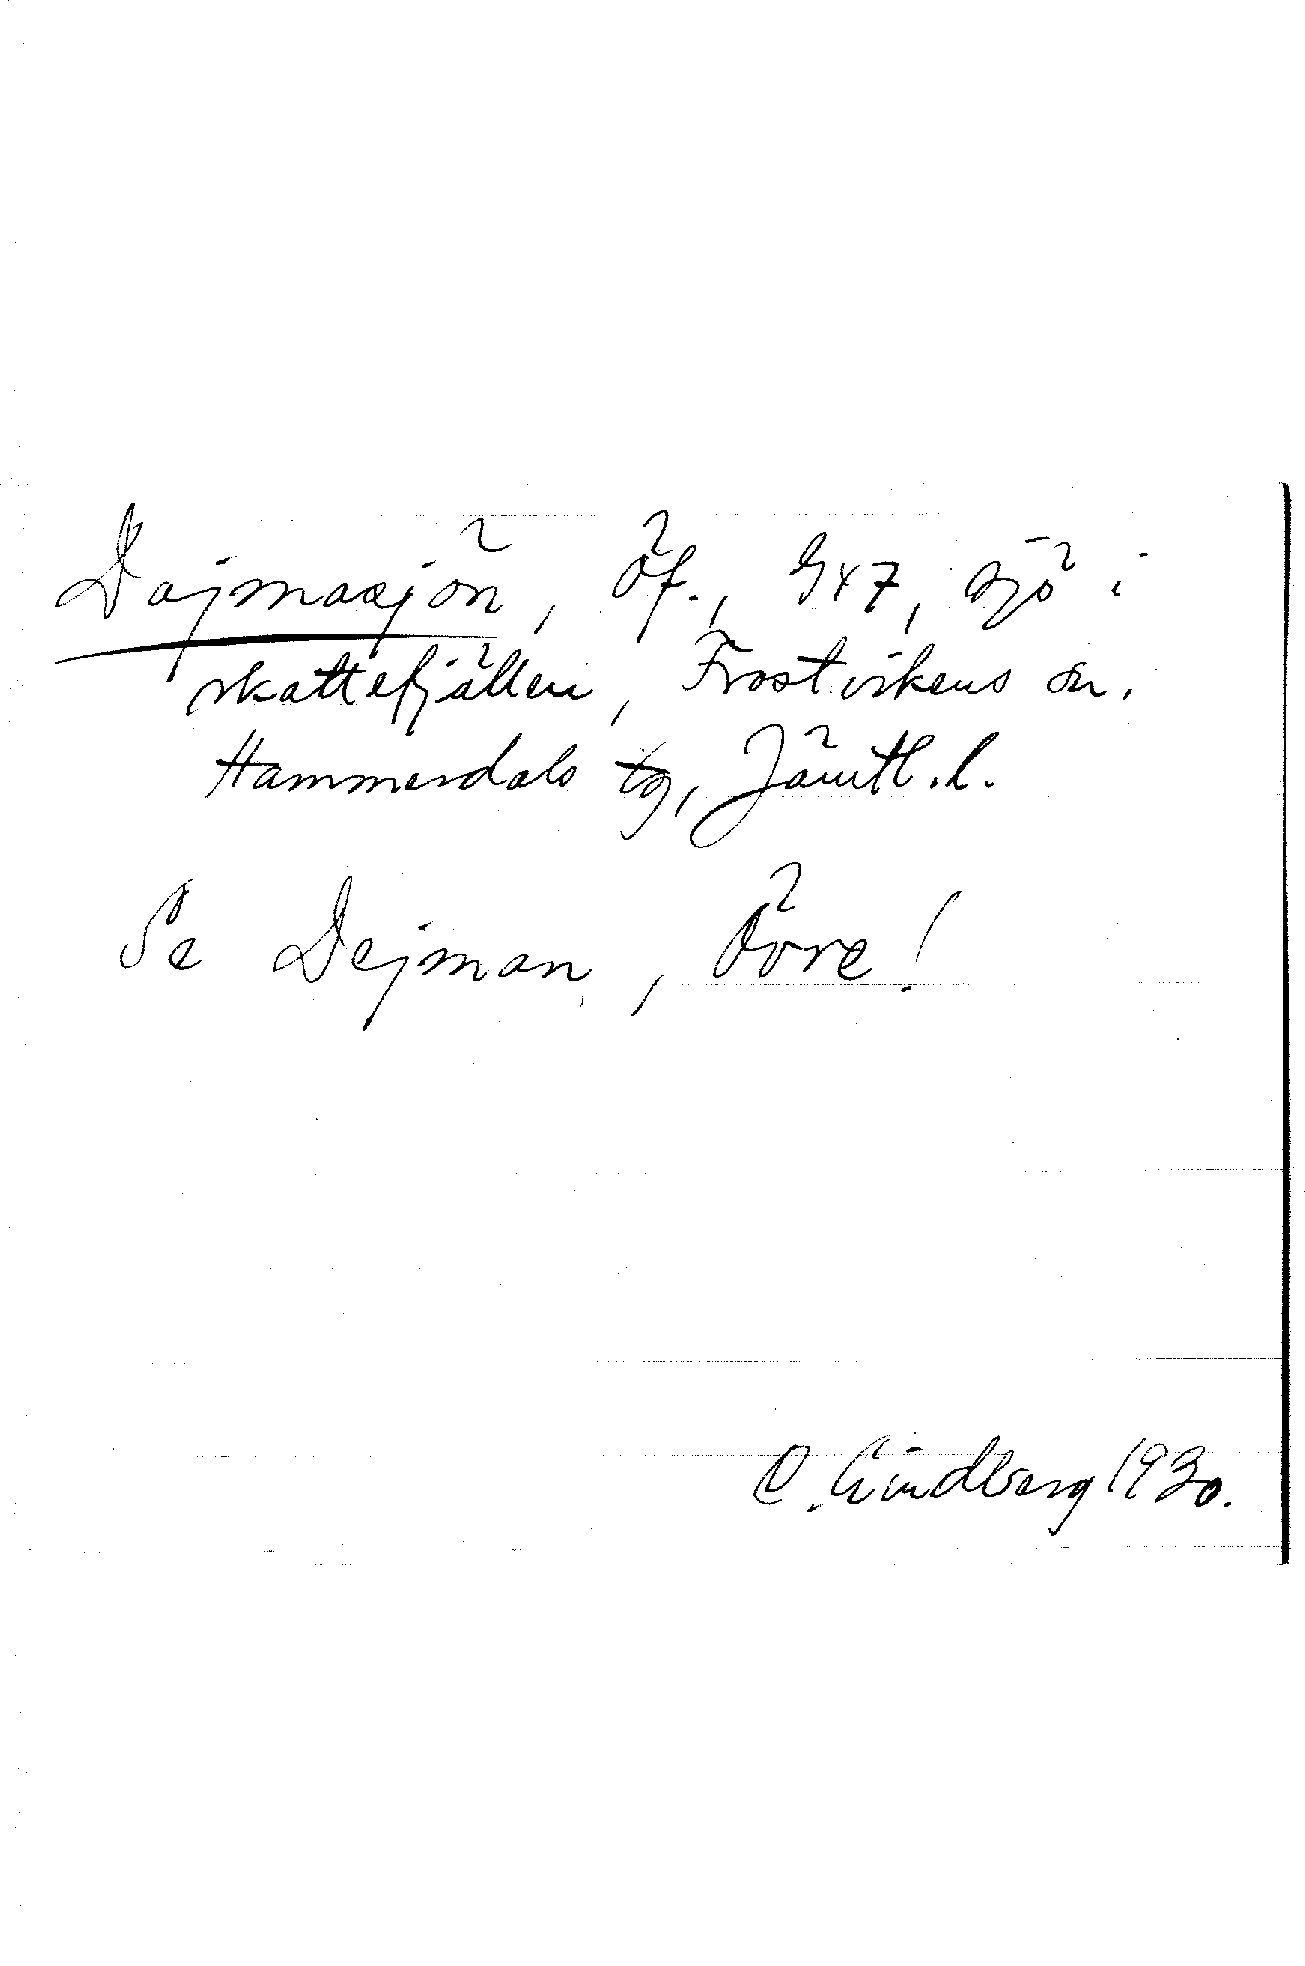 Dajmasjön, Öf., 9x7, sjö i
skattefjällen, Frostvikens sn.
Hammerdals tg, Jämtl. l.
Se Dejman, Övre!
C. Lindberg 1930.